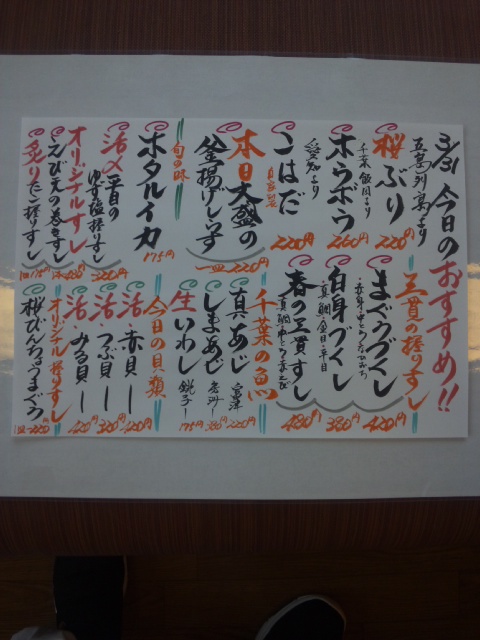 3/31 今日のおすすめ!!
五島列島より
桜ぶり
220円
千葉 飯岡より
ホウボウ
260円
愛知より
こはだ
220円
本日大盛の
釜揚げしらす
一皿 220円
旬の味
ホタルイカ
175円
活〆平目の
ゆず塩握りすし
320円
オリジナルすし
えびえの巻きずし
炙りたこ握りすし
三貫の握りすし
まぐろづくし
420円
白身づくし
真鯛 金目 平目
380円
春の三貫すし
480円
千葉の魚
真あじ
220円
しまあじ
320円
生いわし
銚子
175円
今日の貝類
活・赤貝ー
220円
活・つぶ貝ー
320円
活・みる貝ー
420円
オリジナル握りすし
桜びんちょうまぐろ
一皿 220円